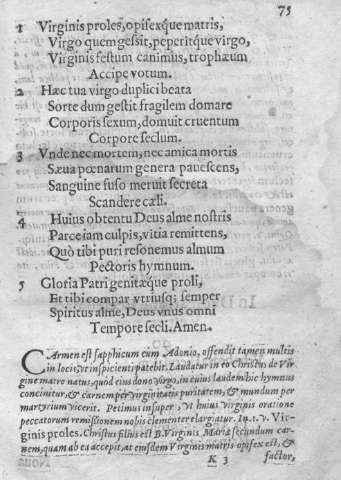 75
1 Virginis proles, opifexq́ue matris,
Virgo quem gessit, peperitq́ue virgo,
Virginis festum canimus, trophæum
Accipe votum.
2 Hæc tua virgo duplici beata
Sorte dum gestit fragilem domare
Corporis sexum, domuit cruentum
Corpore seclum.
3 Vnde nec mortem, nec amica mortis
Sæua pœnarum genera pauescens,
Sanguine fuso meruit secreta
Scandere cæli.
4 Huius obtentu Deus alme nostris
Parce iam culpis, vitia remittens,
Quò tibi puri resonemus almum
Pectoris hymnum.
5 Gloria Patri genitæque proli,
Et tibi compar vtriusq; semper
Spiritus alme, Deus vnus omni
Tempore secli. Amen.
CArmen est sapphicum cum Adonio, offendit tamen multis
in locis, vt inspicienti patebit. Laudatur in eo Christus de Vir
gine matre natus, quod eius dono virgo, in cuius laudem hic hymnus
concinitur, & carnem per virginitatis puritatem, & mundum per
martyrium vicerit. Petimus insuper, vt huius virginis oratione
peccatorum remissionem nobis clementer elargiatur. In.1.v. Vir-
ginis proles. Christus filius est B. Virginis Mariæ secundum car-
nem, quam ab ea accepit, at eiusdem Virginis matris opifex est, &
K 3 factor,